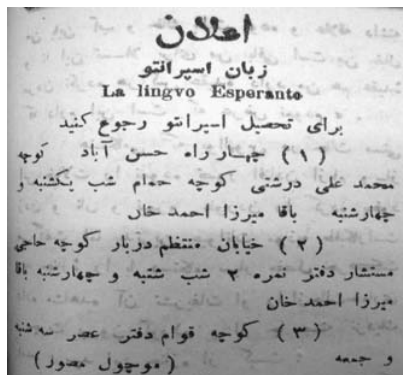 اعلان
زبان اسپرانتو
La lingvo Esperanto
برای تحصیل اسپرانتو رجوع کنید
( ۱ ) چهار راه حسن آباد کوچه
محمد علی درشتی کوچه حمام شب یکشنبه و
چهارشنبه باقا میرزا احمد خان
( ۲ ) خیابان منتظم دربار کوچه حاجی
مستشار دفتر نمره ۲ شب شنبه و چهارشنبه باقا
میرزا احمد خان
( ۳ ) کوچه قوام دفتر عصر سه شنبه
و جمعه ( موچول مصور )